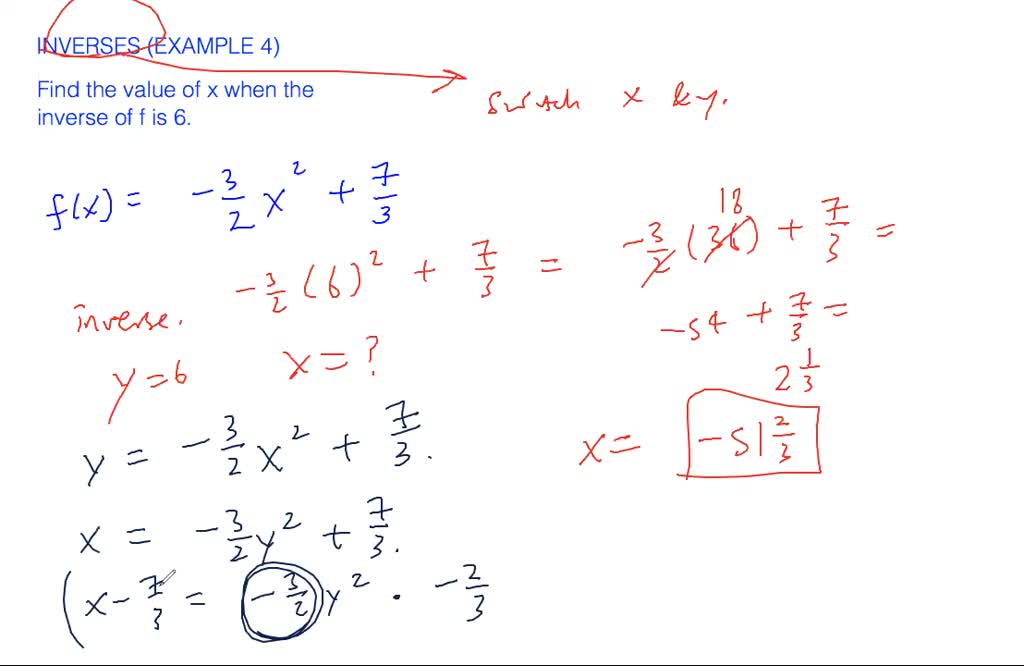 INVERSES (EXAMPLE 4)
Find the value of x when the
inverse of f is 6.
switch x & y.
f(x) = -3/2 x² + 7/3
-3/2 (6)² + 7/3 = -3/2 (36) + 7/3 =
18
-54 + 7/3 =
2 1/3
x = -51 2/3
inverse.
y = 6 x = ?
y = -3/2 x² + 7/3.
x = -3/2 y² + 7/3.
(x - 7/3 = -3/2) y² · -2/3